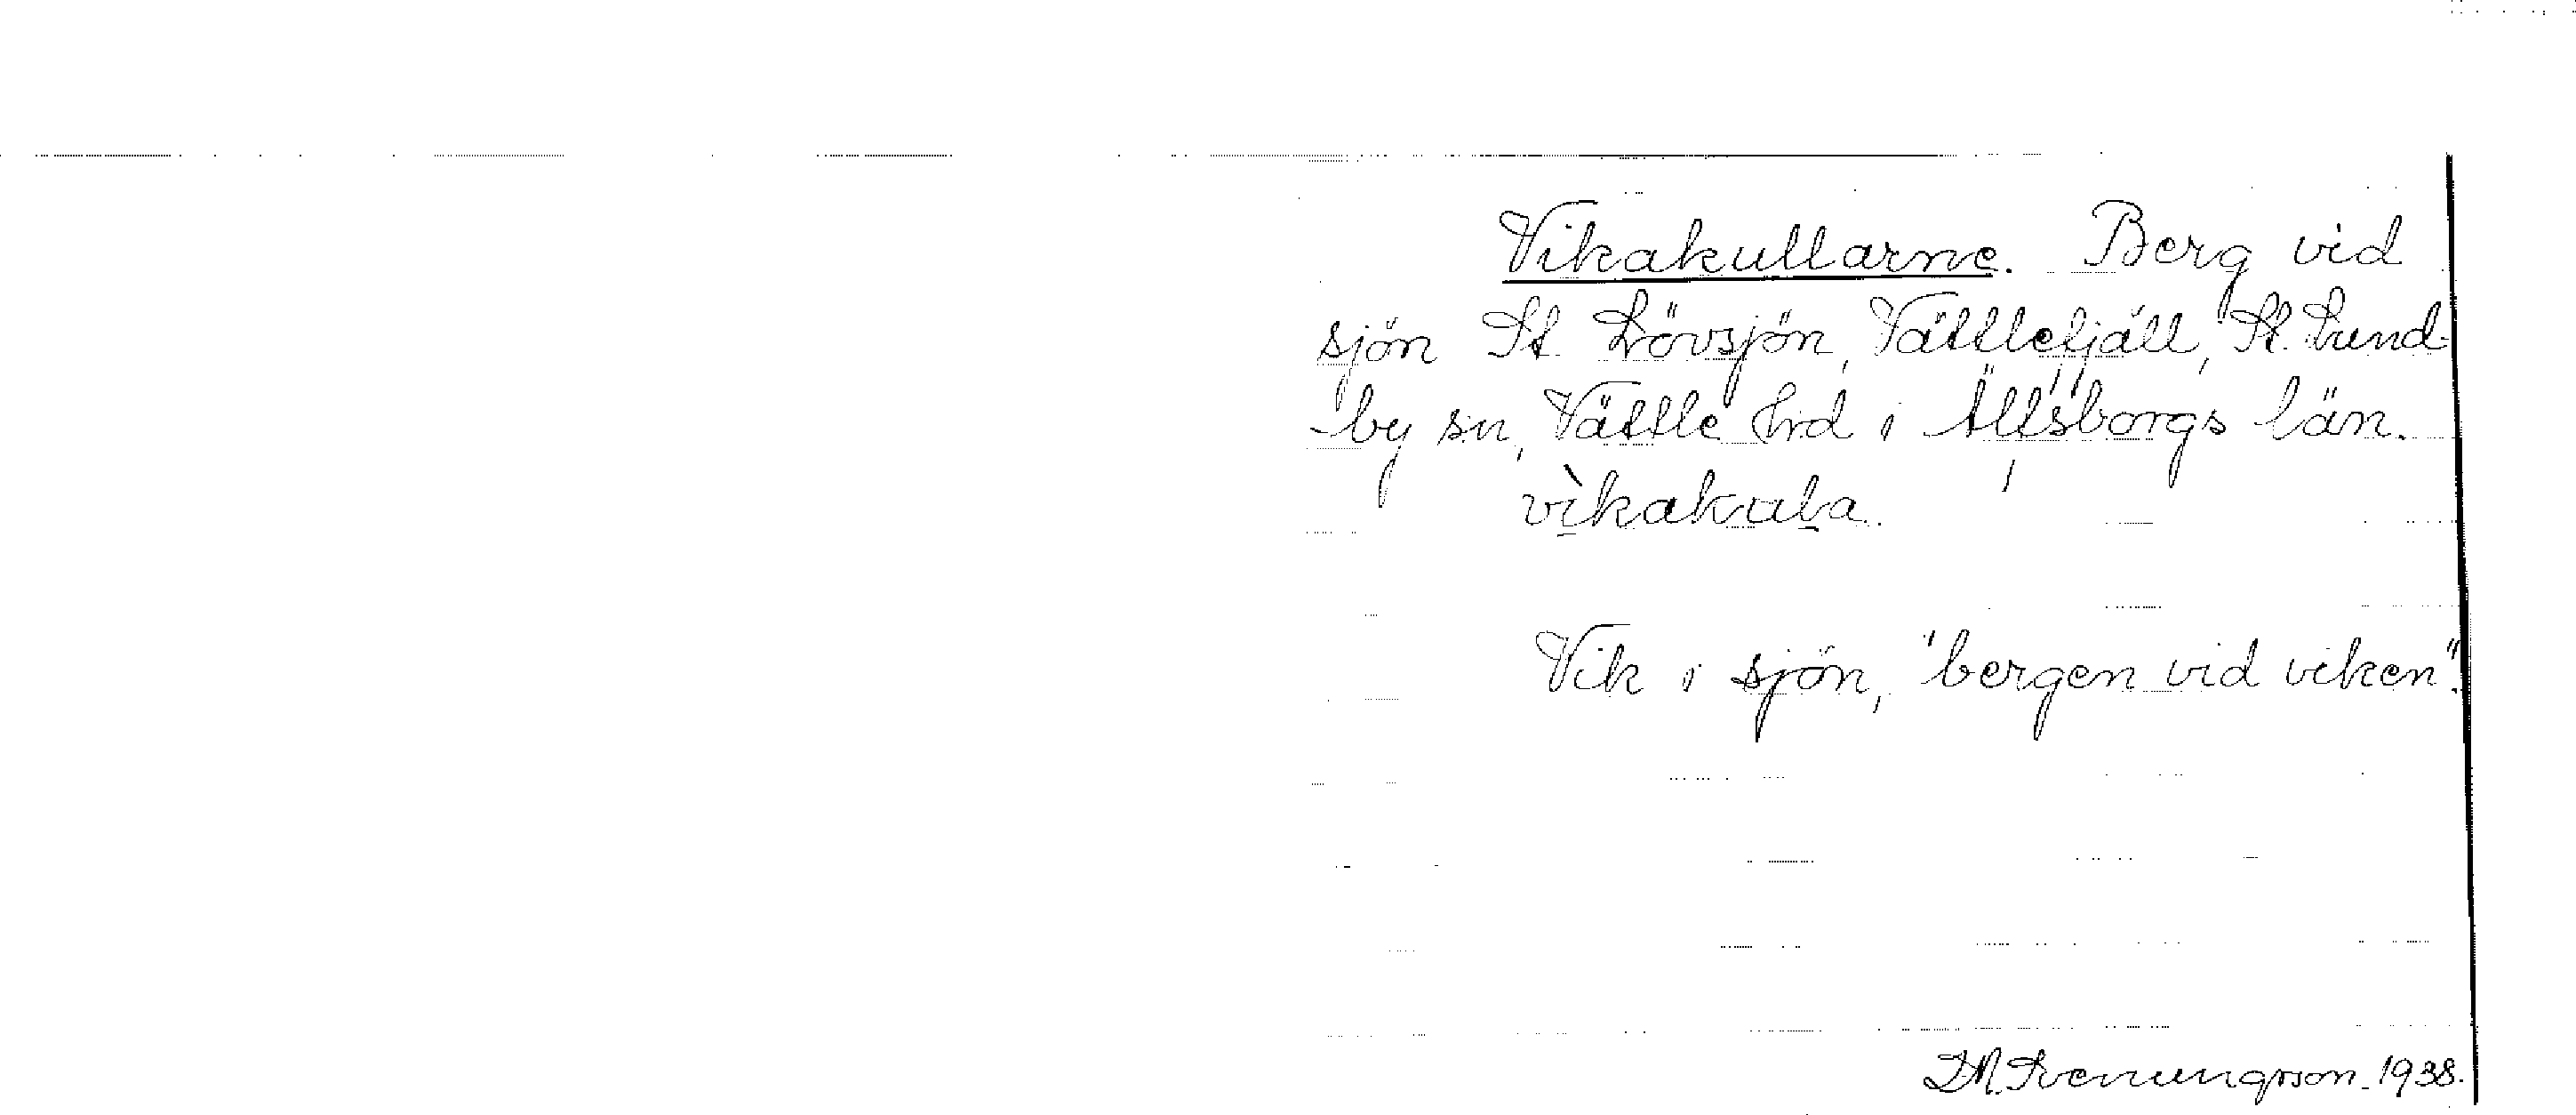 Vikakullarne. Berg vid
sjön St. Lövsjön, Vättlefjäll, St. Lund-
by sn, Vättle hrd i Älfsborgs län.
vìkakula.
Vik i sjön, "bergen vid viken".
I. M. Svenungsson 1938.